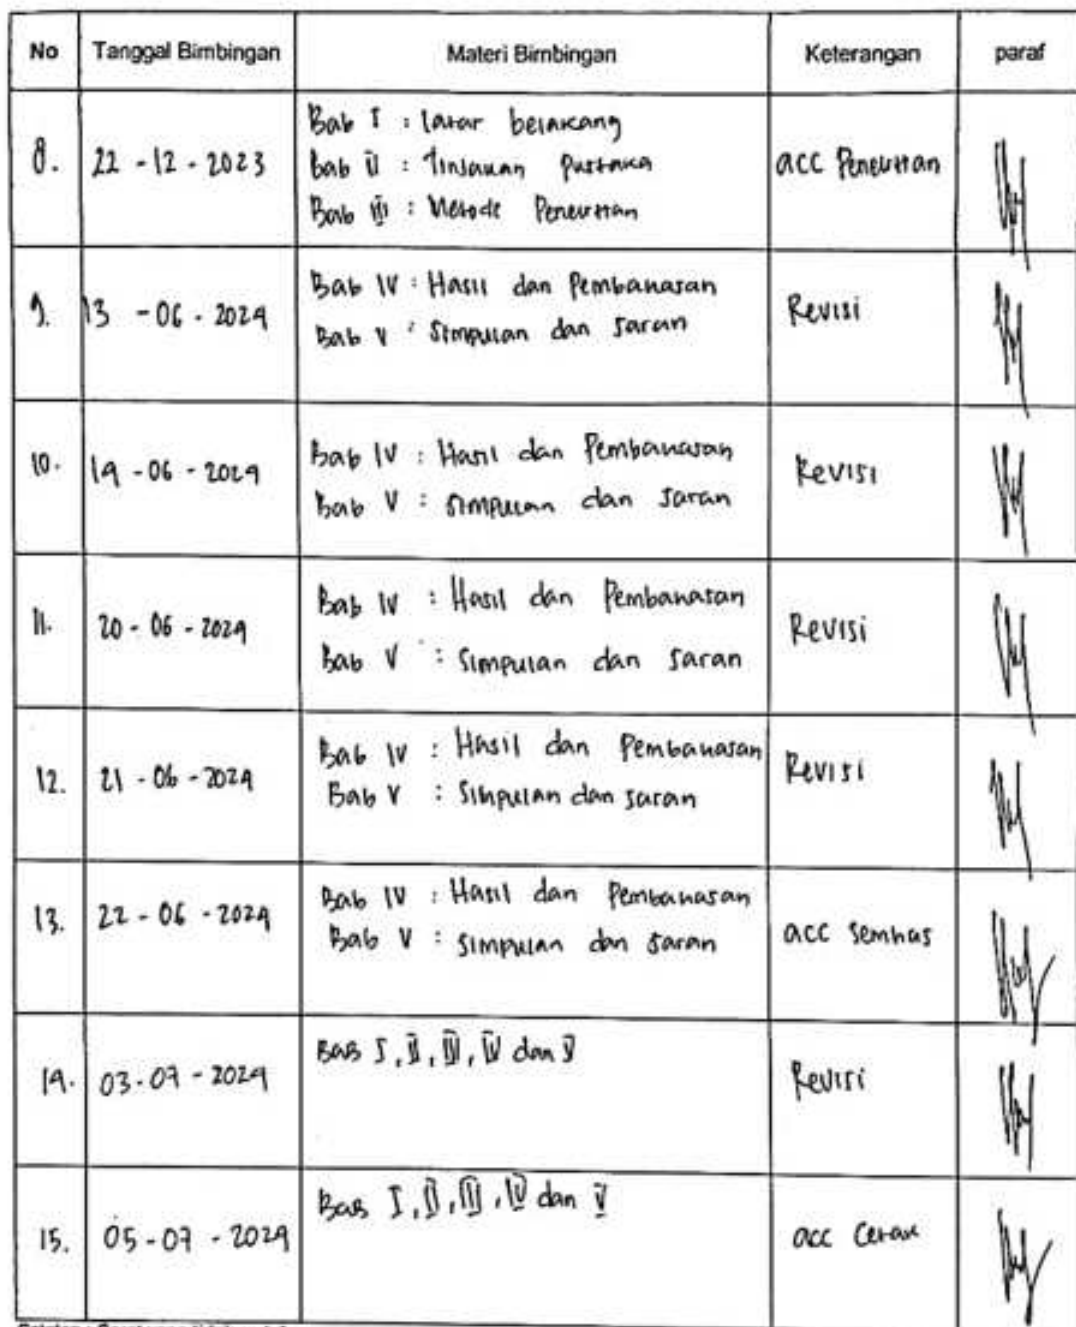 No Tanggal Bimbingan Materi Bimbingan Keterangan paraf
8. 22 - 12 - 2023 Bab I : latar belakang acc Penelitian
Bab II : Tinjauan pustaka
Bab III : Metode Penelitian
9. 13 - 06 - 2024 Bab IV : Hasil dan Pembahasan Revisi
Bab V : Simpulan dan saran
10. 19 - 06 - 2024 Bab IV : Hasil dan Pembahasan Revisi
Bab V : simpulan dan saran
11. 20 - 06 - 2024 Bab IV : Hasil dan Pembahasan Revisi
Bab V : Simpulan dan saran
12. 21 - 06 - 2024 Bab IV : Hasil dan Pembahasan Revisi
Bab V : Simpulan dan saran
13. 22 - 06 - 2024 Bab IV : Hasil dan Pembahasan acc semhas
Bab V : simpulan dan saran
14. 03 - 07 - 2024 BAB I, II, III, IV dan V Revisi
15. 05 - 07 - 2024 BAB I, II, III, IV dan V acc Cetak